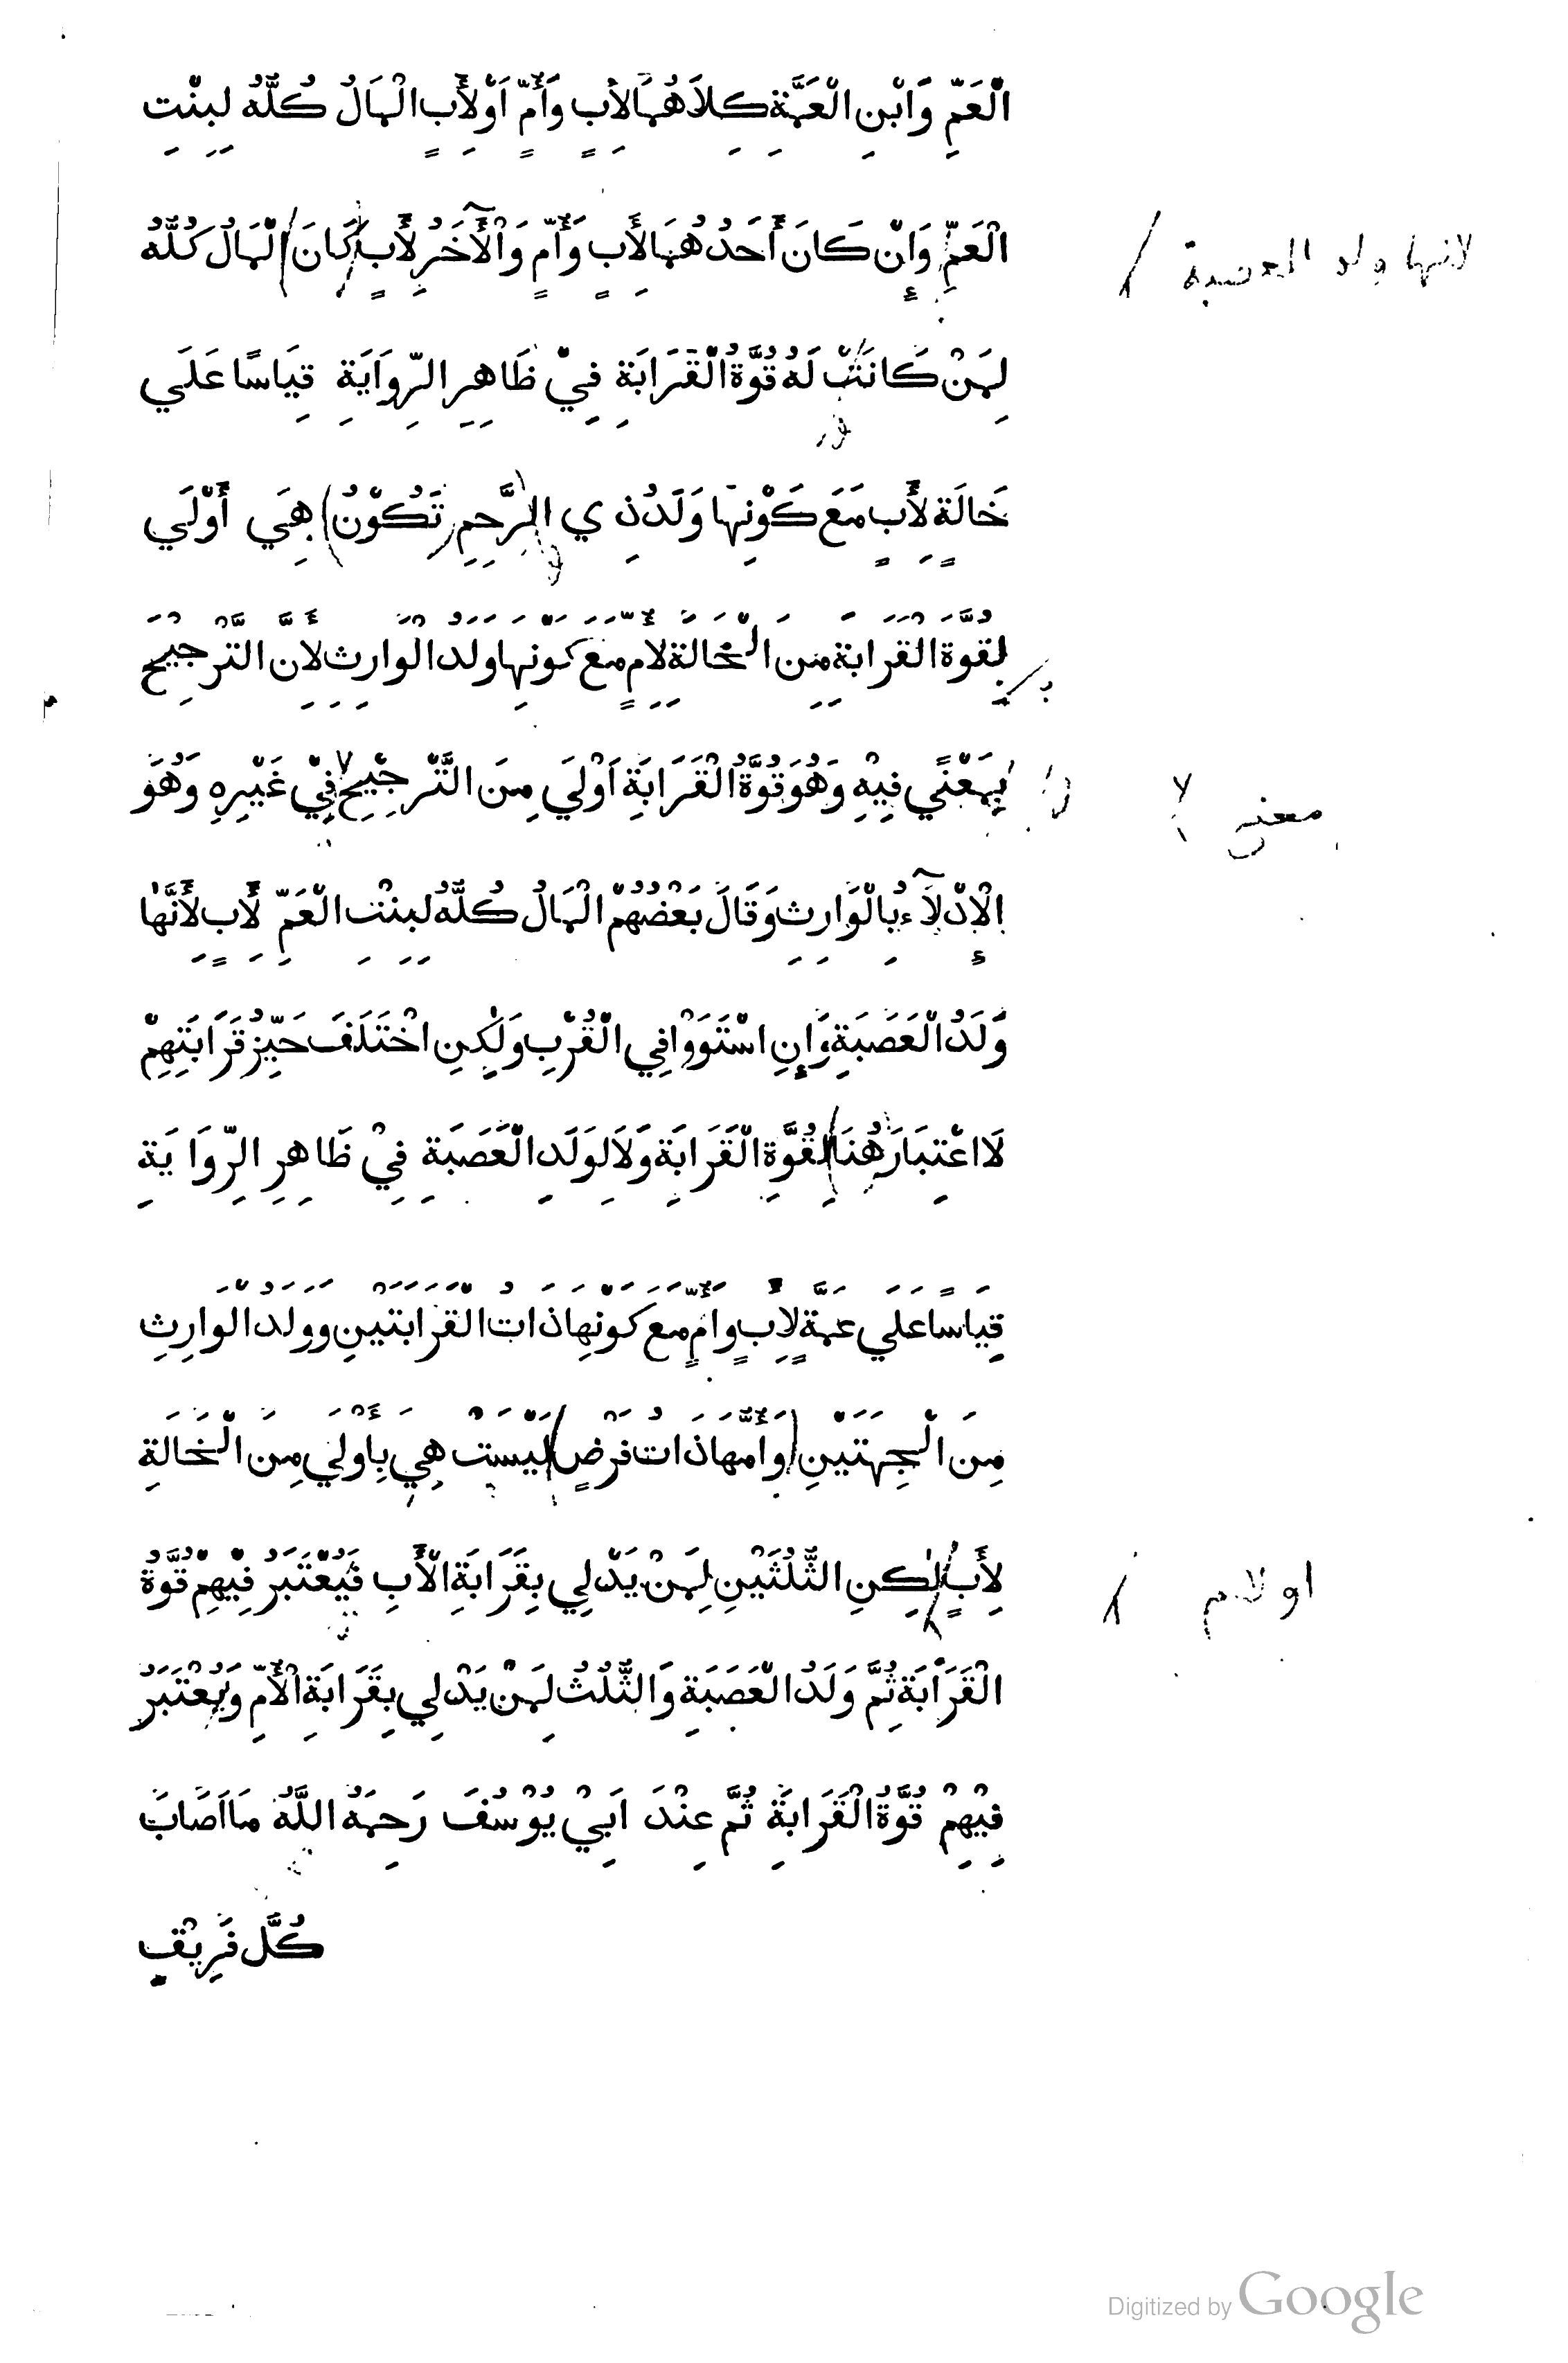 الْعَمِّ وَابْنِ الْعَمَّةِ كِلَاهُمَا لِأَبٍ وَأُمٍّ اَوْ لِأَبٍ الْمَالُ كُلُّهُ لِبِنْتِ
الْعَمِّ وَإِنْ كَانَ أَحَدُهُمَا لِأَبٍ وَأُمٍّ وَالْآخَرُ لِأَبٍ (كَانَ) الْمَالُ كُلُّهُ
لانها ولد العصبة
لِمَنْ كَانَتْ لَهُ قُوَّةُ الْقَرَابَةِ فِيْ ظَاهِرِ الرِّوَايَةِ قِيَاسًا عَلَي
خَالَةٍ لِأَبٍ مَعَ كَوْنِهَا وَلَدُ ذِي الرَّحِمِ (تَكُوْنُ) هِيَ أَوْلَي
لِقُوَّةِ الْقَرَابَةِ مِنَ الْخَالَةِ لِأُمٍّ مَعَ كَوْنِهَا وَلَدَ الْوَارِثِ لِأَنَّ التَّرْجِيْحَ
بِمَعْنًي فِيْهِ وَهُوَ قُوَّةُ الْقَرَابَةِ اَوْلَيَ مِنَ التَّرْجِيْحِ فِيْ غَيْرِهِ وَهُوَ
معني
الْإِدْلَآءُ بِالْوَارِثِ وَقَالَ بَعْضُهُمْ الْمَالُ كُلُّهُ لِبِنْتِ الْعَمِّ لِأَبٍ لِأَنَّهَا
وَلَدُ الْعَصَبَةِ وَإِنِ اسْتَوَوْا فِي الْقُرْبِ وَلٰكِنِ اخْتَلَفَ حَيِّزُ قَرَابَتِهِمْ
لَا اعْتِبَارَ (هُنَا) لِقُوَّةِ الْقَرَابَةِ وَلَا لِوَلَدِ الْعَصَبَةِ فِيْ ظَاهِرِ الرِّوَايَةِ
قِيَاسًا عَلَي عَمَّةٍ لِأَبٍ وَأُمٍّ مَعَ كَوْنِهَا ذَاتُ الْقَرَابَتَيْنِ وَوَلَدُ الْوَارِثِ
مِنَ الْجِهَتَيْنِ (وَأُمُّهَا ذَاتُ فَرْضٍ) لَيْسَتْ هِيَ بِأَوْلَي مِنَ الْخَالَةِ
لِأَبٍ لٰكِنِ الثُّلُثَيْنِ لِمَنْ يَدْلِي بِقَرَابَةِ الْأَبِ فَيُعْتَبَرُ فِيْهِمْ قُوَّةُ
او لام
الْقَرَابَةِ ثُمَّ وَلَدُ الْعَصَبَةِ وَالثُّلُثُ لِمَنْ يَدْلِي بِقَرَابَةِ الْأُمِّ وَيُعْتَبَرُ
فِيْهِمْ قُوَّةُ الْقَرَابَةِ ثُمَّ عِنْدَ اَبِيْ يُوْسُفَ رَحِمَهُ اللَّهُ مَا اَصَابَ
كُلَّ فَرِيْقٍ
Digitized by Google